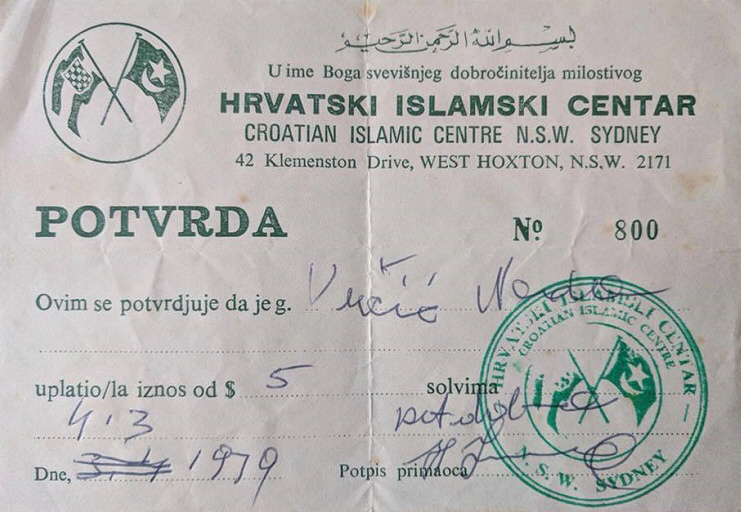 بسم الله الرحمن الرحيم
U ime Boga svevišnjeg dobročinitelja milostivog
HRVATSKI ISLAMSKI CENTAR
CROATIAN ISLAMIC CENTRE N.S.W. SYDNEY
42 Klemenston Drive, WEST HOXTON, N.S.W. 2171
POTVRDA
Nº 800
Ovim se potvrdjuje da je g.
uplatio/la iznos od $ 5 solvima
4.3
Dne, 1979 Potpis primaoca
HRVATSKI ISLAMSKI CENTAR
CROATIAN ISLAMIC CENTRE
N. S. W. SYDNEY